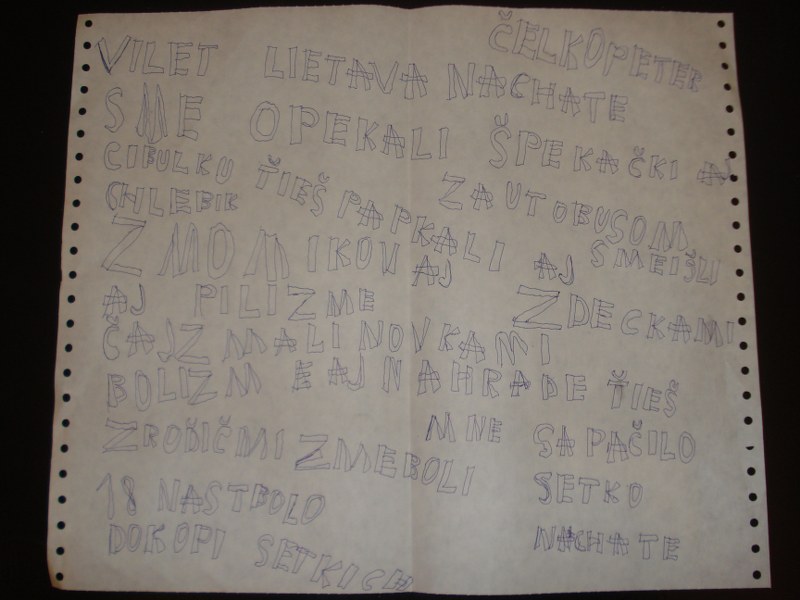 ČELKOPETER
VILET LIETAVA NACHATE
SME OPEKALI ŠPEKAČKI AJ
CIBULKU ŤIEŠ PAPKALI ZAUTOBUSOM
CHLEBIK SMEIŠLI
ZMOMIKOV AJ AJ ZDECKAMI
AJ PILIZME
ČAJZ MALINOVKAMI
BOLIZM E AJ NAHRADE ŤIEŠ
ZRODIČMI ZMEBOLI MNE SAPAČILO
18 NASTBOLO SETKO
DOKOPI SETKICH NACHATE